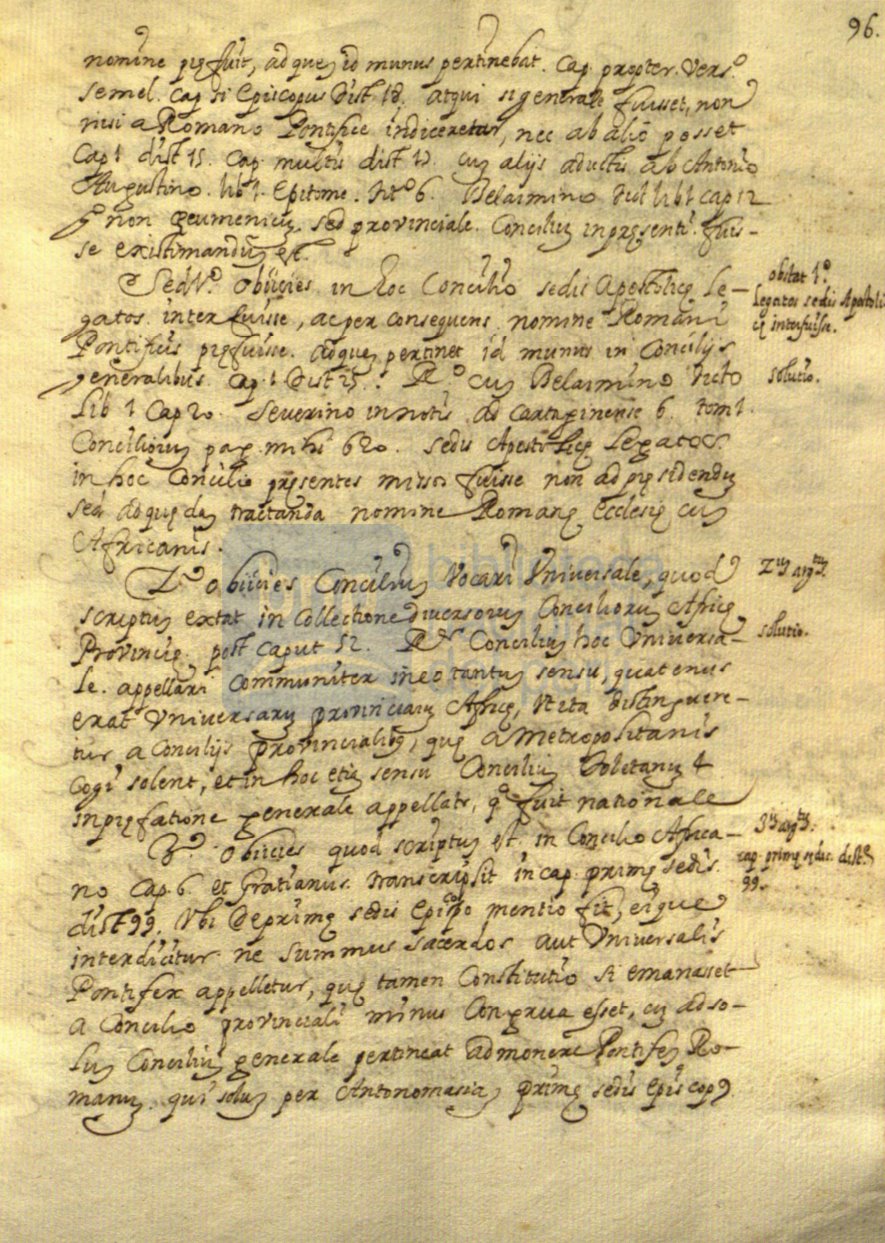 96.
nomine pręfuit, ad quē id munus pertinebat. Cap. propter. Vers.º
semel. Cap si Episcopus Dist 18. atqui si generale fuisset, non
nisi a Romano Pontifice indiceretur, nec ab alio posset
Cap 1 dist 15. Cap. multis dist 17. cū alijs aductis ab Antonio
Augustino. lib 1. Epitome. titº 6. Belarmino lib 1 cap 12
non Œcumenicū. sed provinciale. Conciliū in pręsenti. fuis-
se existimandū est.
Sed 1º. Obiicies in hoc Concilio sedis Apostolicę Le-
gatos interfuisse, ac per consequens nomine Romani
Pontificis pręfuisse. ad quē pertinet id munus in Concilijs
generalibus. Cap. 1 Dist 25. Rº cū Belarmino dicto
lib 1 Cap 20. Severino in notis ad cartaginense 6. tom 1.
Conciliorū pag. mihi 620. sedis Apostolicę Legatos
in hoc Concilio pręsentes missos fuisse non ad pręsidendū
sed ad quędā tractanda nomine Romanę Ecclesię cū
Africanis.
2º obiicies Conciliū Vocari Universale, quod
scriptū extat in Collectione diversorū Conciliorū Africę
Provincię. post caput 52. Rº Conciliū hoc Universa-
le. appellari communiter in eo tantū sensu, quatenus
erat Universarū provinciarū Africę, Ut ita distinguere-
tur a Concilijs provincialib9, quę a Metropolitanis
Cogi solent, et in hoc etiā sensu Conciliū Toletanū 4
in pręfatione generale appellatr, qº fuit nationale
3º. obiicies quod scriptū est in Concilio Africa-
no cap. 6. et Gratianus. transcripsit in cap. primę sedis.
dist 99. Ubi De primę sedis Epīpo mentio fit, eique
interdicitur ne summus sacerdos aut Universalis
Pontifex appelletur, quę tamen Constitutio si emanasset
a Concilio provinciali minus Congrua esset, cū ad so-
lū Conciliū generale pertineat admonere Pontifeē Ro-
manū. qui solus per Antonomasiā primę sedis Epīscop9
obstat 1º.
Legatos sedis Apostoli
cę interfuisse.
solutio.
2ū argtū.
solutio.
3ū argtū.
cap. primę sędis. dist.
99.